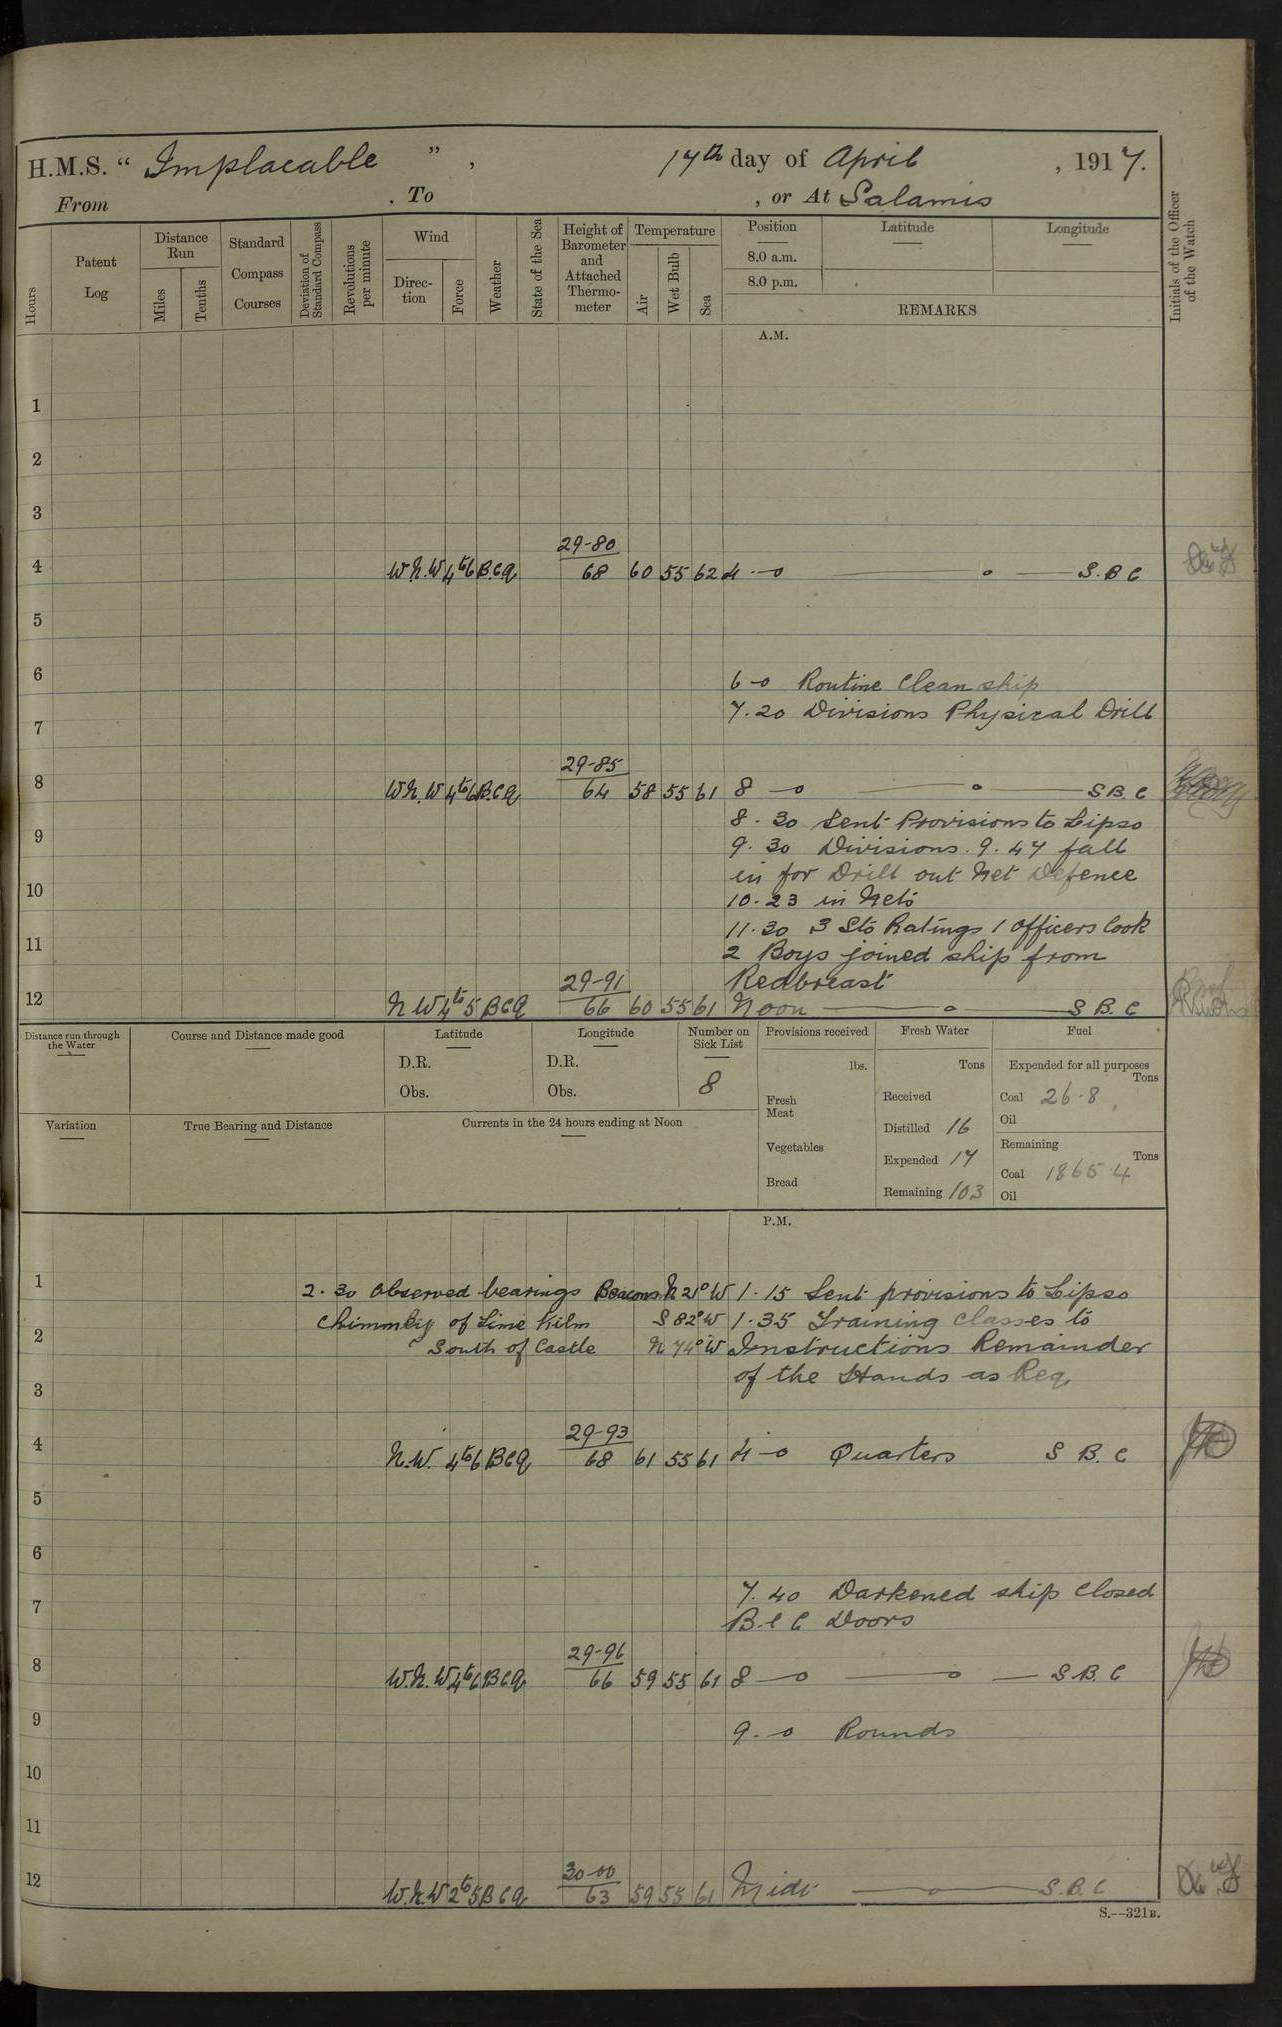 H.M.S. " Implacable " , 17th day of April , 1917.
From , To , or At Salamis
Hours
Patent Log
Distance Run
Miles
Tenths
Standard Compass Courses
Deviation of Standard Compass
Revolutions per minute
Wind
Direction
Force
Weather
State of the Sea
Height of Barometer and Attached Thermometer
Temperature
Air
Wet Bulb
Sea
Position
8.0 a.m.
8.0 p.m.
Latitude
Longitude
REMARKS
Initials of the Officer of the Watch
A.M.
1
2
3
29-80
4 W.N.W 4 to 6 B.C.q 68 60 55 62 4 -o o S.B.C
5
6
6-o Routine Clean ship
7.20 Divisions Physical Drill
7
29-85
8 W.N.W 4 to 6 B.C.q 64 58 55 61 8 -o o S.B.C
8.30 Sent Provisions to Lipso
9
9.30 Divisions. 9.47 fall
in for Drill out Net Defence
10
10.23 in Nets
11.30 3 Sto Ratings 1 Officers Cook
11
2 Boys joined ship from
29-91 Redbreast
12 N W 4 to 5 B C q 66 60 55 61 Noon o S B C
Distance run through the Water
Course and Distance made good
Latitude
D.R.
Obs.
Longitude
D.R.
Obs.
Number on Sick List
8
Provisions received
lbs.
Fresh Meat
Vegetables
Bread
Fresh Water
Tons
Received
Distilled 16
Expended 17
Remaining 103
Fuel
Expended for all purposes
Tons
Coal 26.8
Oil
Remaining
Tons
Coal 1865.4
Oil
Variation
True Bearing and Distance
Currents in the 24 hours ending at Noon
P.M.
1
2.30 Observed bearings Beacons N 21° W 1.15 Sent provisions to Lipso
Chimney of Lime Kiln S 82° W 1.35 Training Classes to
2
South of Castle N 74° W Instructions Remainder
of the Hands as Req
3
29-93
4 N.W. 4 to 6 B C q 68 61 55 61 4-o Quarters S B.C
5
6
7.40 Darkened ship Closed
7
B.&C Doors
29-96
8 W.N.W 4 to 6 B C q 66 59 55 61 8 -o o S.B.C
9
9.-o Rounds
10
11
30-00
12 W.N.W 2 to 5 B C q 63 59 55 61 Midt o S.B.C
S.—321B.